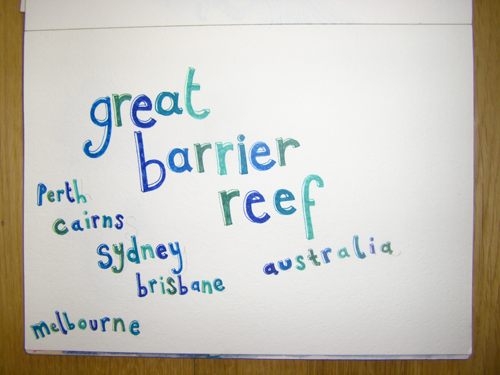 great
barrier
reef
perth
cairns
sydney
brisbane
australia
melbourne